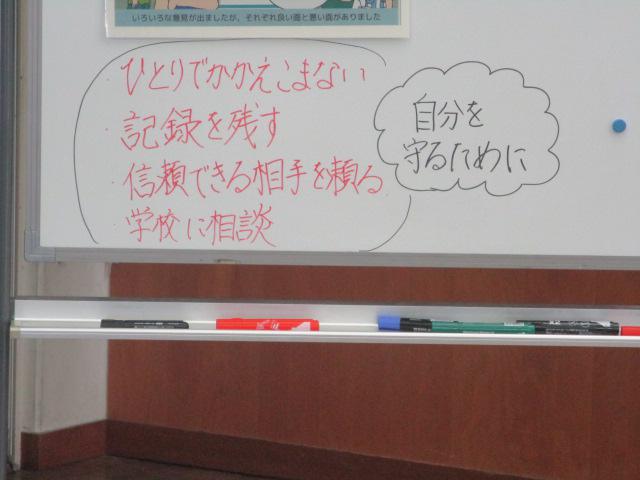 いろいろな意見が出ましたが、それぞれ良い面と悪い面がありました
・ひとりでかかえこまない
・記録を残す
・信頼できる相手を頼る
・学校に相談
自分を
守るために